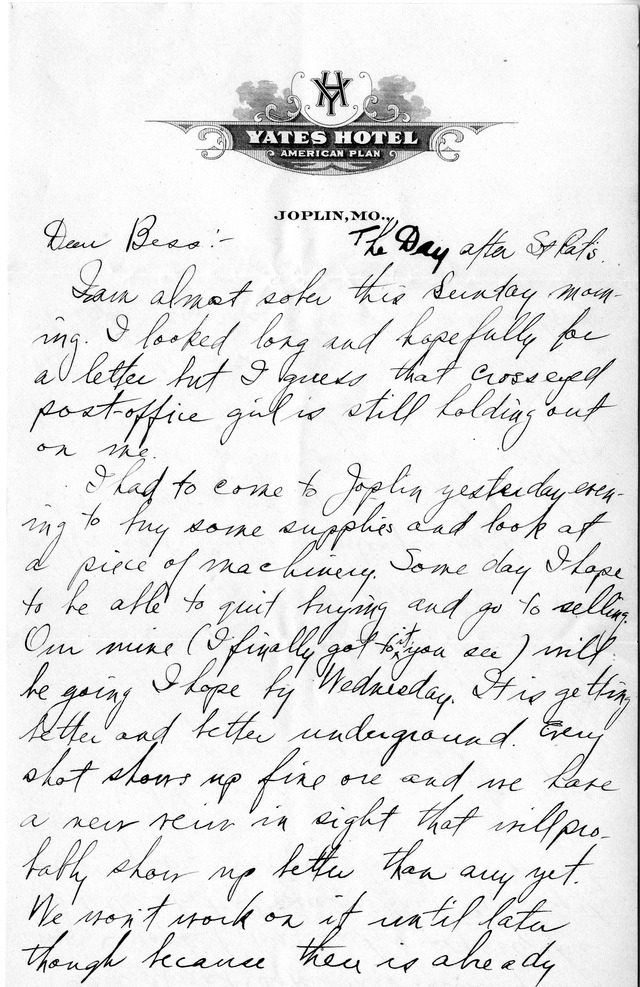 YH
YATES HOTEL
AMERICAN PLAN
JOPLIN, MO.,
Dear Bess:- The Day after St Pat's.
I am almost sober this Sunday morn-
ing. I looked long and hopefully for
a letter but I guess that crosseyed
post-office girl is still holding out
on me.
I had to come to Joplin yesterday even-
ing to buy some supplies and look at
a piece of machinery. Some day I hope
to be able to quit buying and go to selling.
Our mine (I finally got to it you see) will
be going I hope by Wednesday. It is getting
better and better underground. Every
shot shows up fine ore and we have
a new vein in sight that will pro-
bably show up better than any yet.
We won't work on it until later
though because there is already